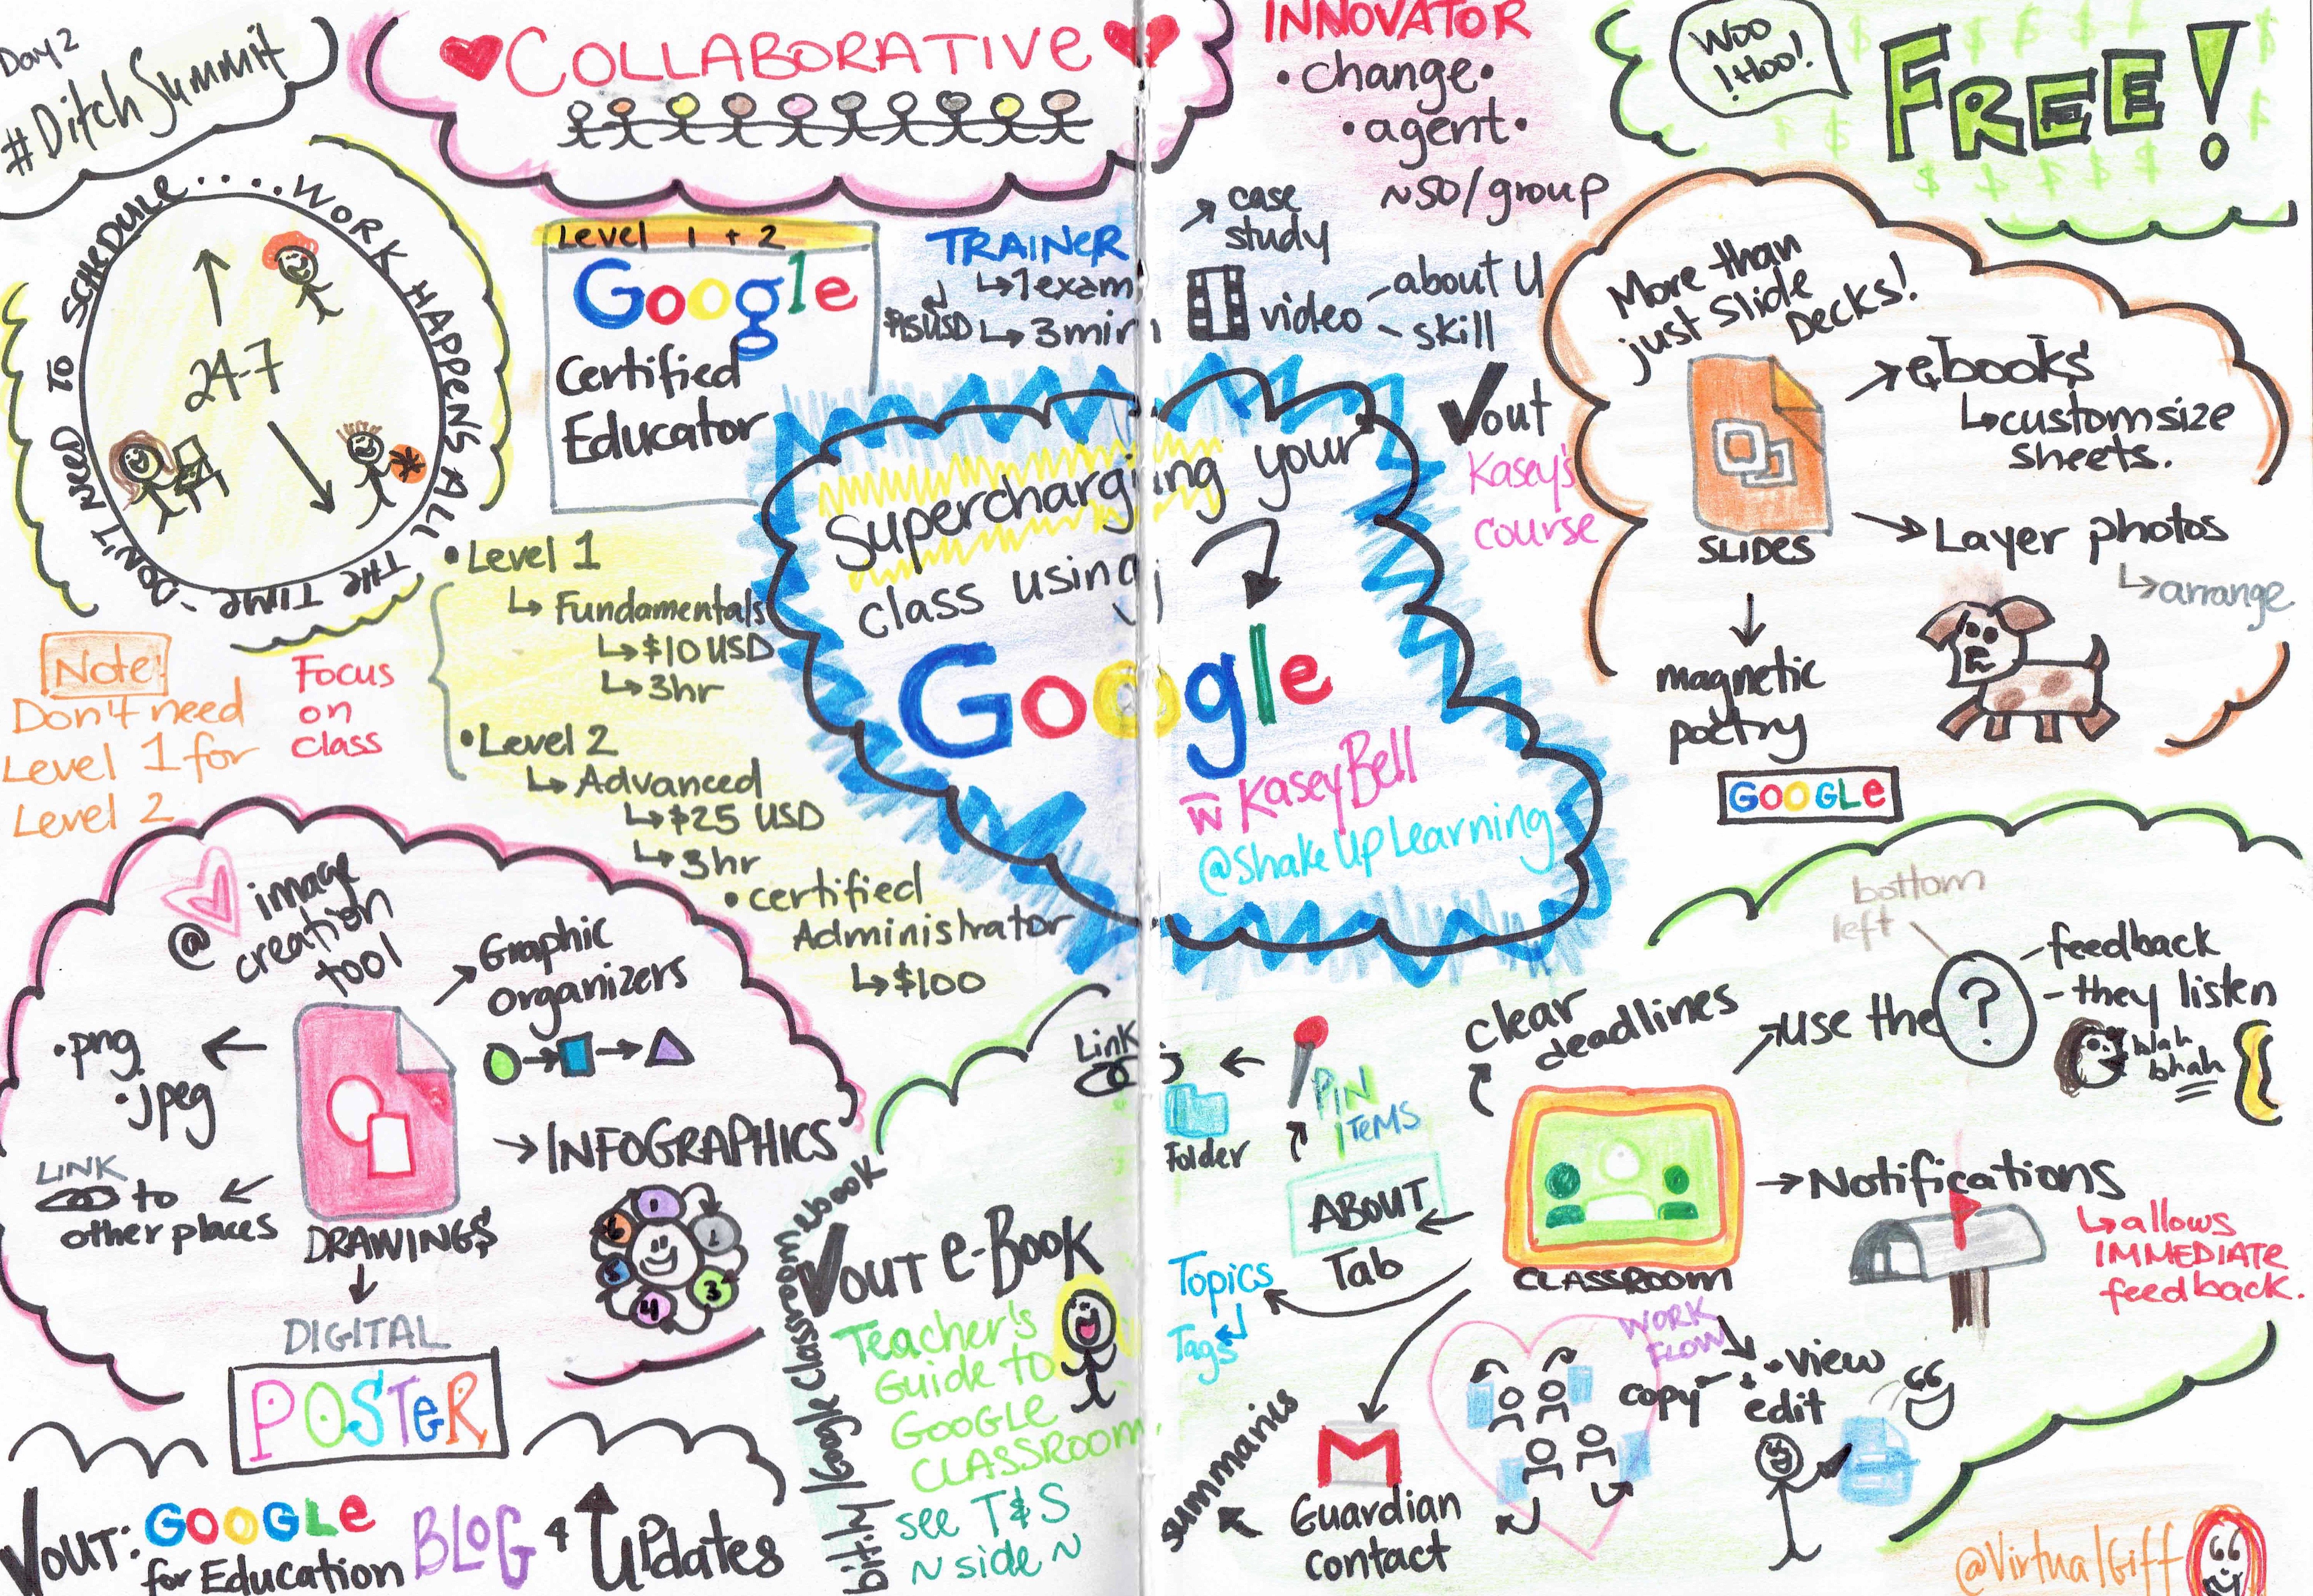 Day 2
#DitchSummit
COLLABORATIVE
INNOVATOR
•change•
•agent•
~50/group
WOO
!HOO!
FREE!
DON'T NEED TO SCHEDULE.... WORK HAPPENS ALL THE TIME -
24-7
Level 1 + 2
Google
Certified
Educator
TRAINER
1 exam
$15USD
3 min
case
study
video
- about U
- skill
✓out
Kasey's
course
Supercharging your
class using
Google
w KaseyBell
@ShakeUpLearning
More than
just Slide
Decks!
SLIDES
ebooks
custom size
sheets.
Layer photos
arrange
magnetic
poetry
GOOGLE
Note:
Don't need
Level 1 for
Level 2
Focus
on
class
• Level 1
Fundamentals
$10 USD
3hr
• Level 2
Advanced
$25 USD
3hr
• certified
Administrator
$100
@ image
creation
tool
Graphic
organizers
.png
.jpeg
INFOGRAPHICS
1
1
3
4
5
6
LINK
to
other places
DRAWINGS
DIGITAL
POSTER
✓OUT:
GOOGLE
for Education
BLOG
+ Updates
bit.ly/GoogleClassroomebook
✓OUT e-Book
Teacher's
Guide to
GOOGLE
CLASSROOM
see T&S
~ side ~
Link
Folder
PIN
ITEMS
ABOUT
Tab
Topics
Tags
clear
deadlines
bottom
left
use the
?
- feedback
- they listen
blah
bhah
CLASSROOM
Notifications
allows
IMMEDIATE
feedback.
WORK
FLOW
copy
• view
edit
Guardian
contact
summaries
@VirtualGiff